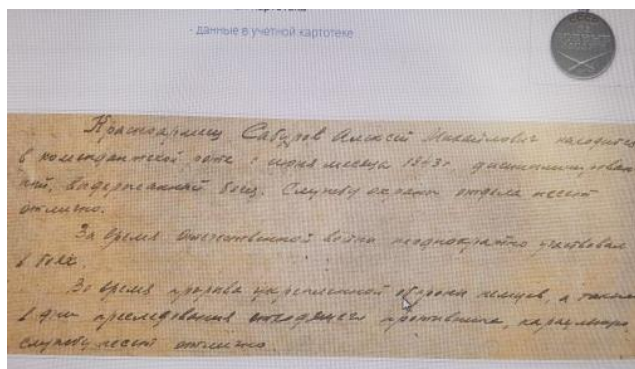 картотека
- данные в учетной картотеке
СССР
Красноармеец Сабуров Алексей Михайлович находится
в комендантской роте с июня месяца 1943г. дисциплинирован
ный, выдержанный боец. Службу охраны отдела несет
отлично.
За время Отечественной войны неоднократно участвовал
в боях.
Во время прорыва укрепленной обороны немцев, а также
в дни преследования отходящего противника, караульную
службу несет отлично.